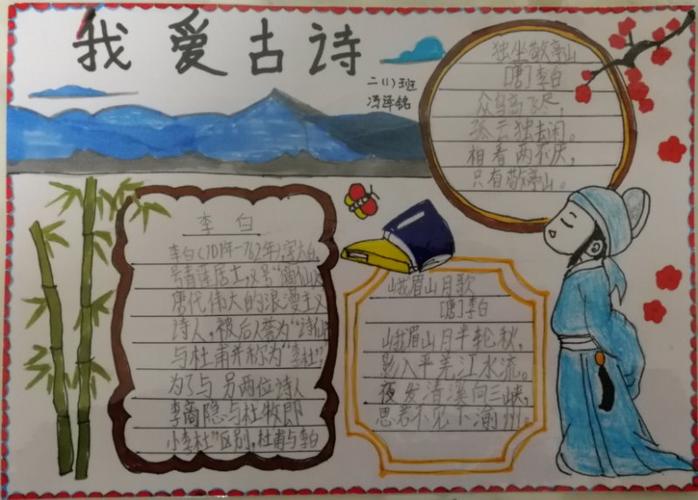 我爱古诗
二(1)班
冯泽铭
独坐敬亭山
[唐]李白
众鸟高飞尽，
孤云独去闲。
相看两不厌，
只有敬亭山。
李白
李白(701年-762年),字太白,
号青莲居士,又号"谪仙人
唐代伟大的浪漫主义
诗人，被后人誉为"诗仙
与杜甫并称为"李杜"
为了与另两位诗人
李商隐与杜牧即
小李杜"区别,杜甫与李白
峨眉山月歌
[唐]李白
峨眉山月半轮秋，
影入平羌江水流。
夜发清溪向三峡，
思君不见下渝州。